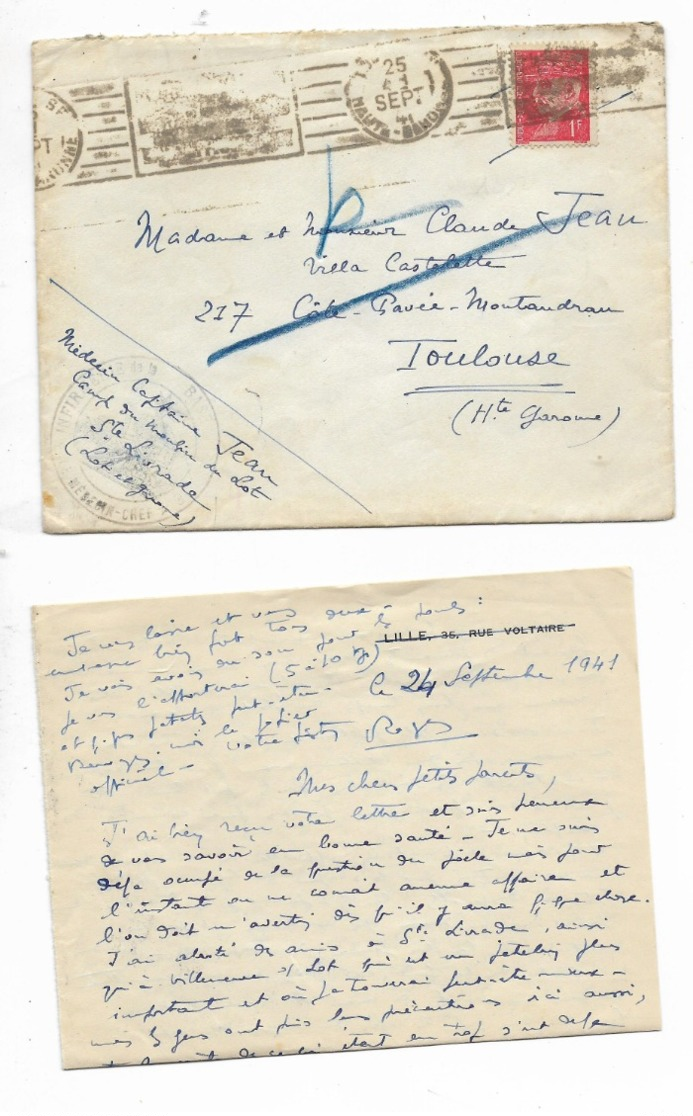 25
SEPT
41
HAUTE-GARONNE
1F
Madame et Monsieur Claude Jean
Villa Castelette
217 Côte-Pavée-Montaudran
Toulouse
(Hte Garonne)
Médecin Capitaine Jean
Camp du Moulin du Lot
Ste Livrade
(Lot et Garonne)
INFIR
MÉDECIN-CHEF
Je vous laisse et vous
embrasse bien fort tous deux
Je vais avoir du son pour les poules :
je vous l'apporterai (5 à 10 kg)
et petits peut-être
le papier
officiel -
LILLE, 35, RUE VOLTAIRE
le 24 Septembre 1941
Mes chers petits parents,
J'ai bien reçu votre lettre et suis heureux
de vous savoir en bonne santé - Je me suis
déjà occupé de la question du poêle mais pour
l'instant on ne connait aucune affaire et
l'on doit m'avertir dès qu'il y aura quelque chose.
J'ai alerté des amis à Ste Livrade, ainsi
qu'à Villeneuve s/ Lot qui est un patelin plus
important et où je trouverai peut-être mieux -
mais les gens ont pris leurs précautions ici aussi,
était en trop s'est